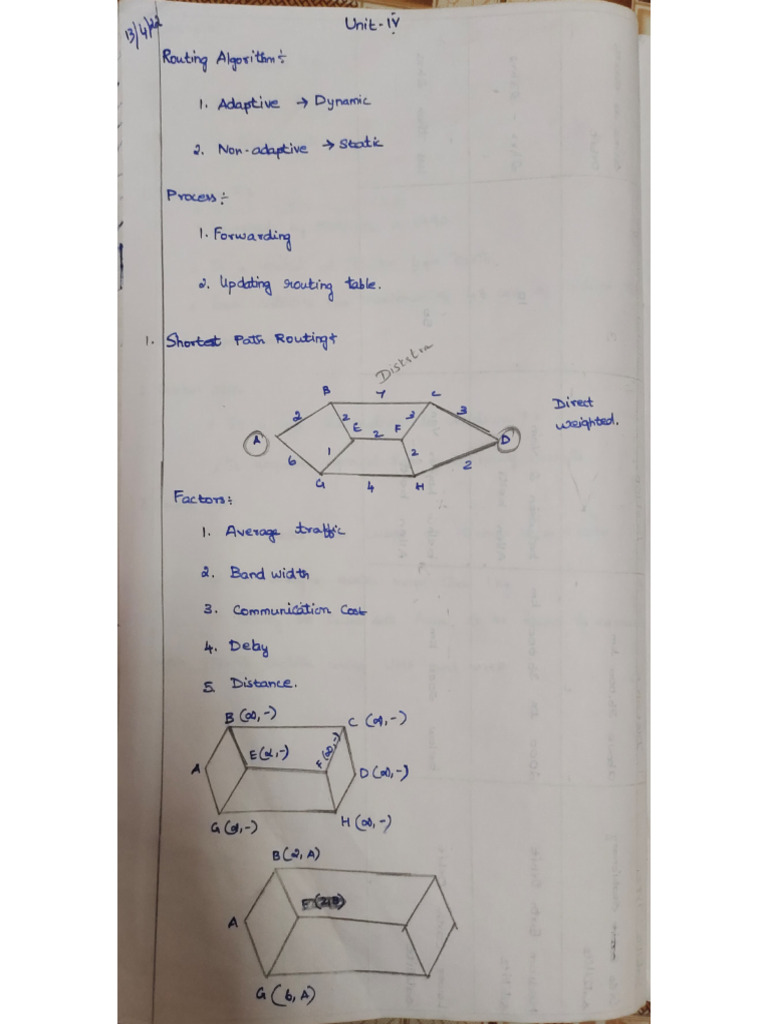 13/4/22
Unit-IV
Routing Algorithm:-
1. Adaptive → Dynamic
2. Non-adaptive → Static
Process:-
1. Forwarding
2. Updating routing table.
1. Shortest Path Routing:
Diskstra
B 7 C
2 2 3 3
Direct weighted.
A E 2 F D
6 1 2 2
G 4 H
Factors:
1. Average traffic
2. Band width
3. Communication Cost
4. Delay
5. Distance.
B (∞,-) C (∞,-)
E (∞,-) F (∞,-)
A D (∞,-)
G (∞,-) H (∞,-)
B (2, A)
E
A
G (6, A)